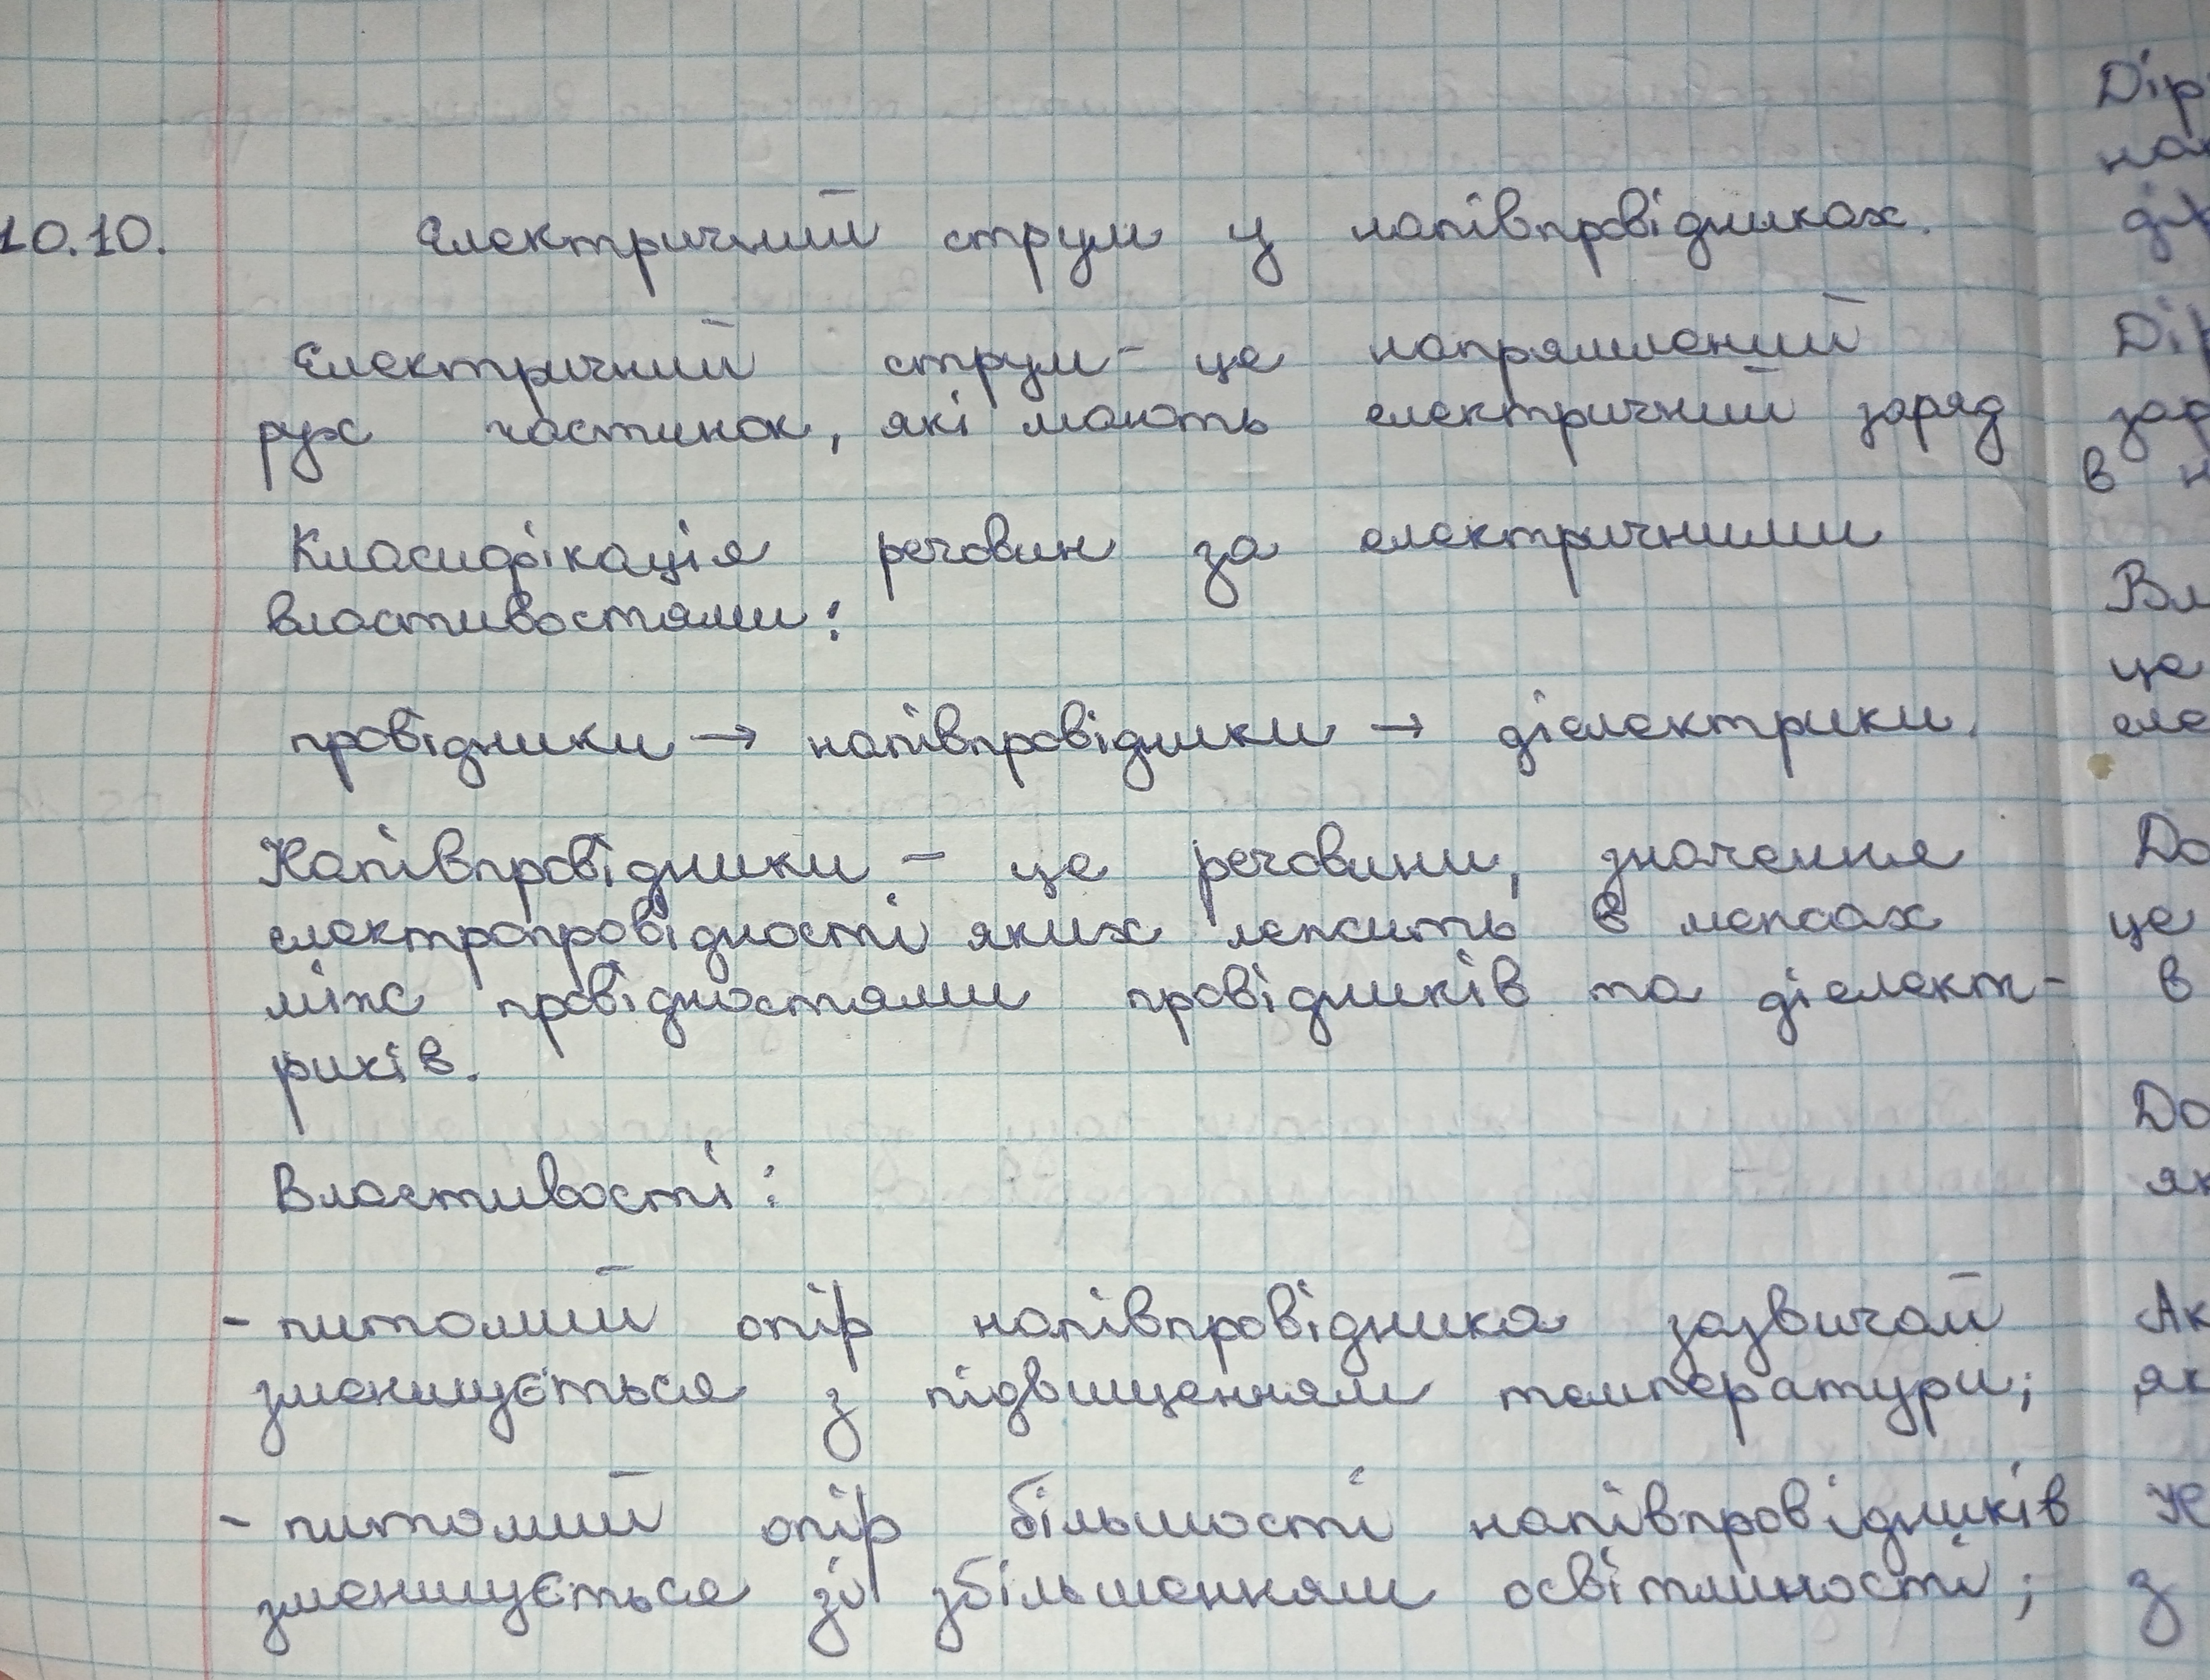 10.10. Електричний струм у напівпровідниках.
Електричний струм - це напрямлений
рух частинок, які мають електричний заряд
Класифікація речовин за електричними
властивостями:
провідники → напівпровідники → діелектрики.
Напівпровідники - це речовини, значення
електропровідності яких лежить в межах
між провідностями провідників та діелект-
риків.
Властивості:
- питомий опір напівпровідника зазвичай
зменшується з підвищенням температури;
- питомий опір більшості напівпровідників
зменшується зі збільшенням освітленості;
Дір
Дір
зар
в н
Вл
це
еле
До
це
в
До
як
Ак
як
Н
з